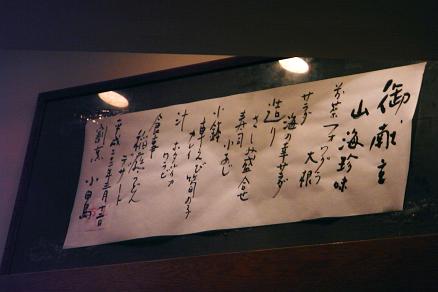 御献立
山海珍味
前菜 フォアグラ
大根
サラダ 海の幸サラダ
造り
さしみ盛合せ
寿司 小あじ
小鉢
車えび 筍の子
汁
食事
稲庭うどん
デザート
平成二十二年三月十二日
割烹 小田島